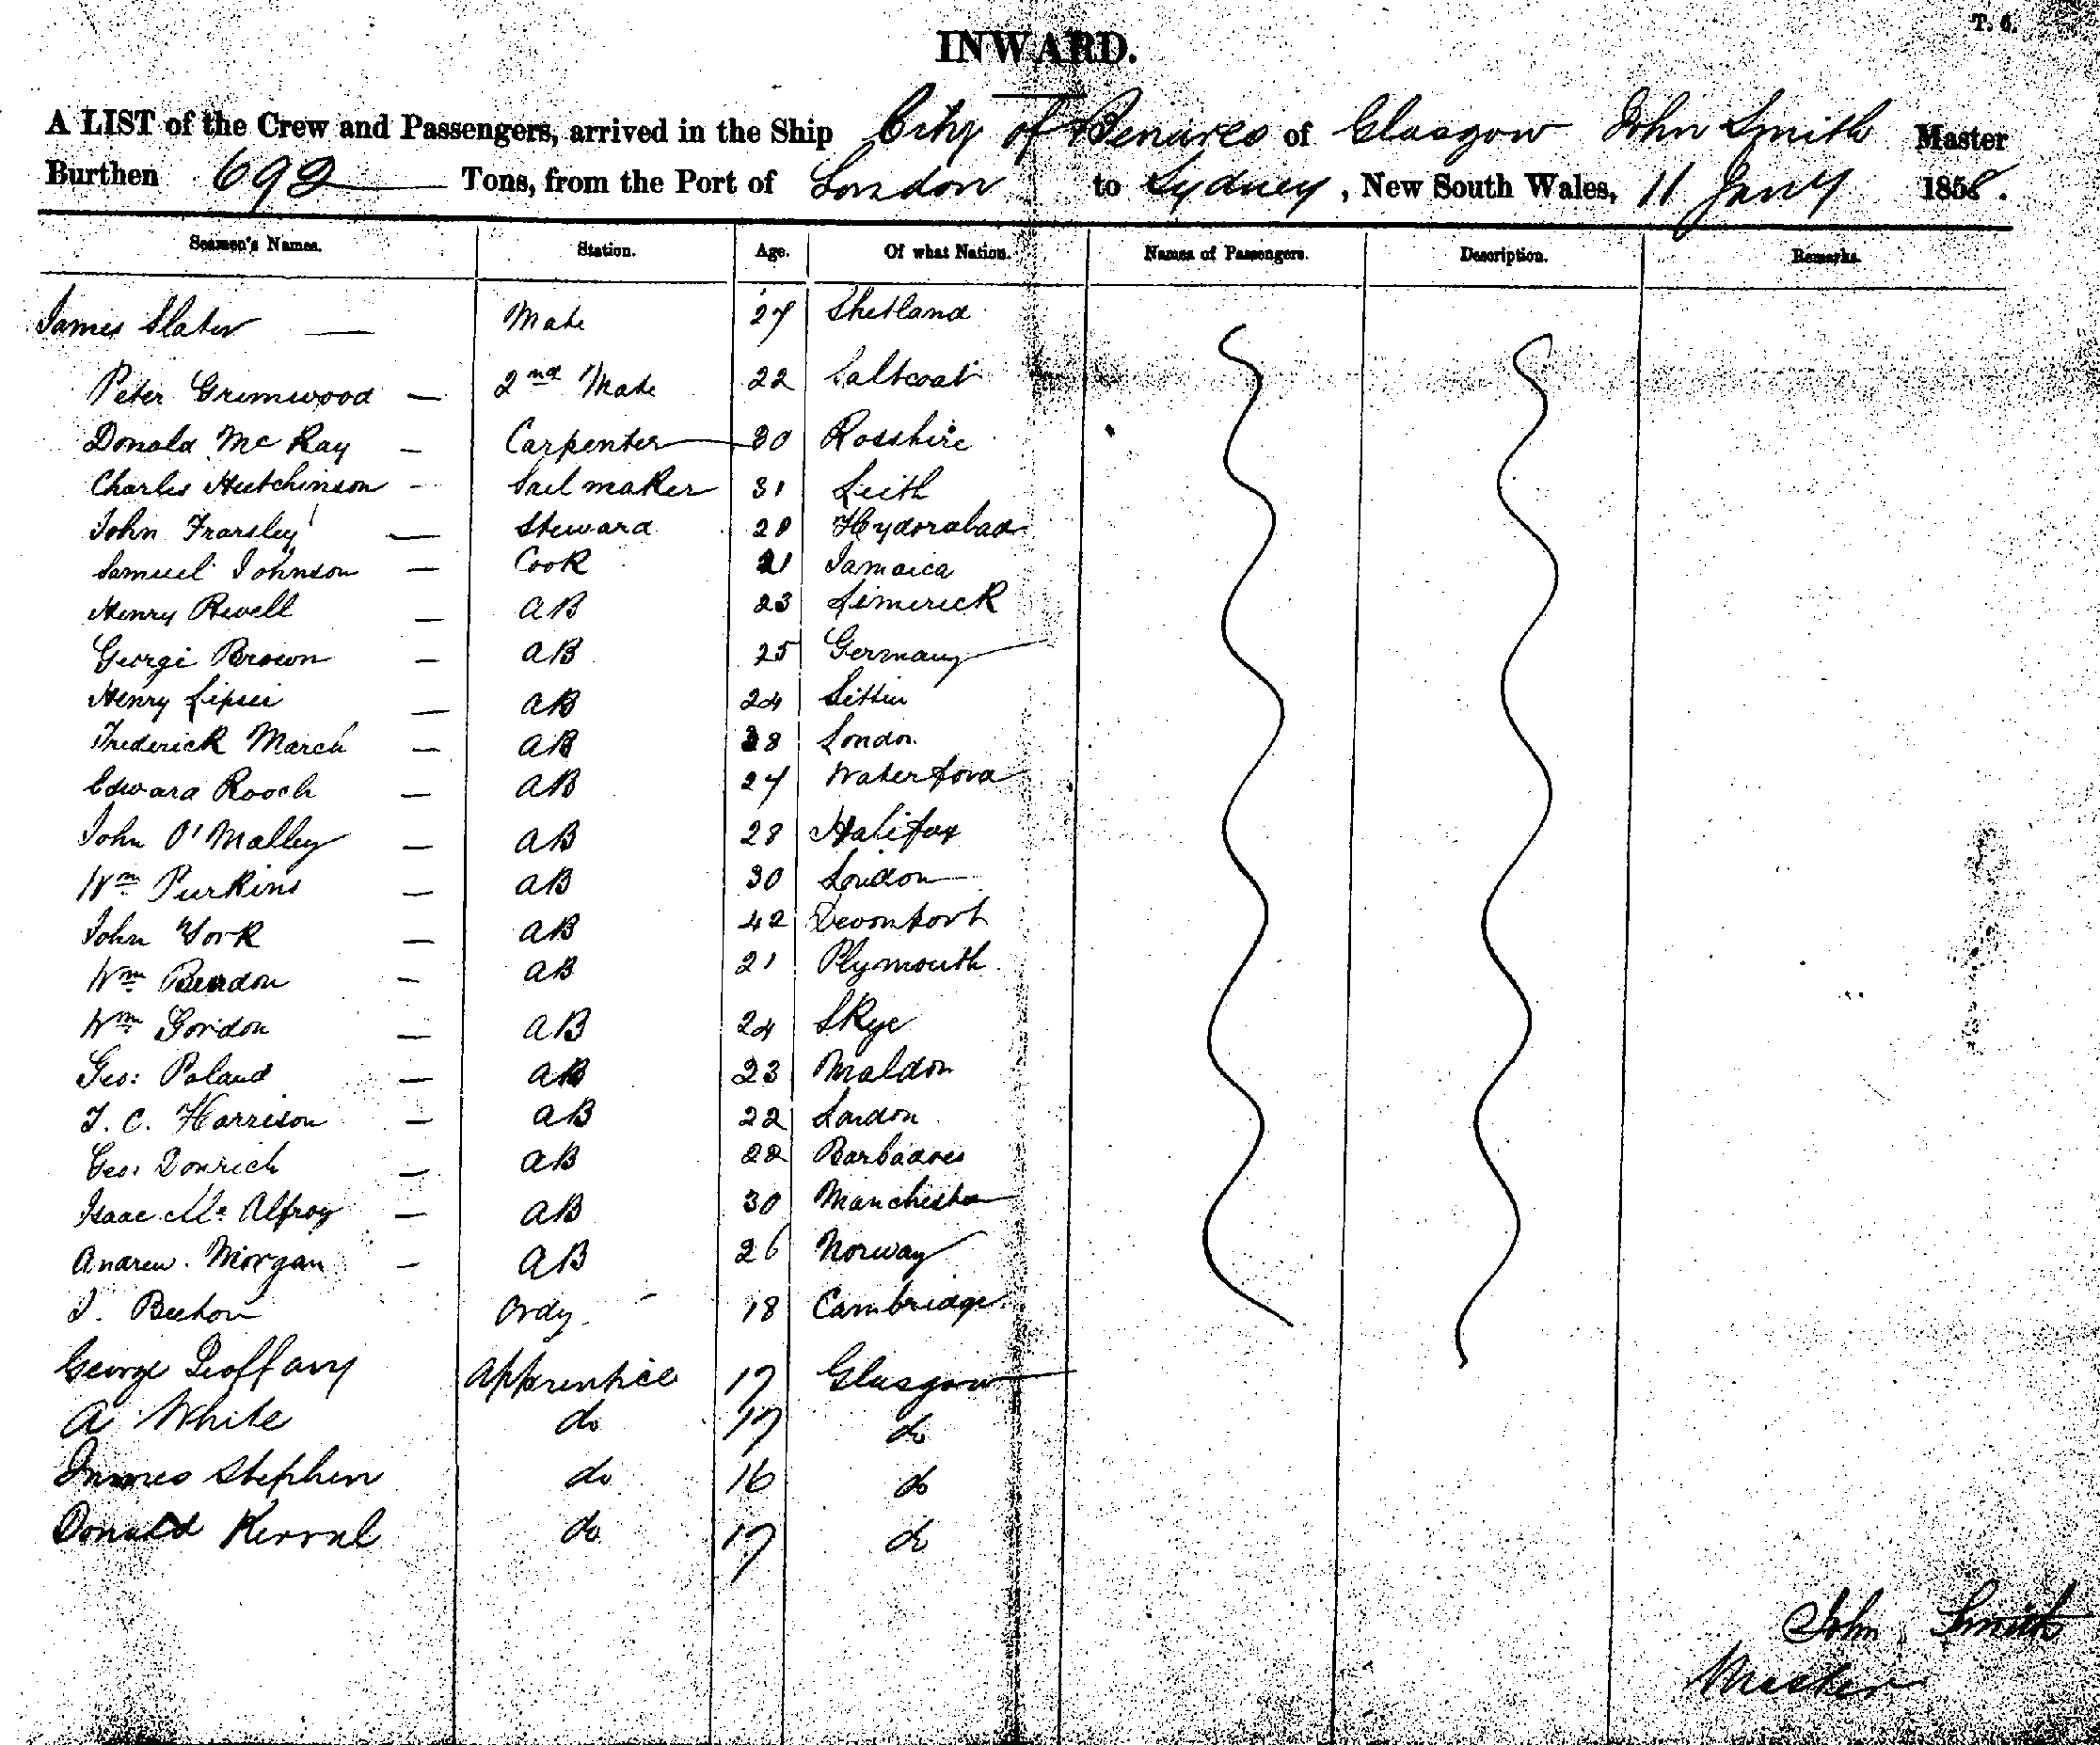 T. 6.
INWARD.
A LIST of the Crew and Passengers, arrived in the Ship City of Benares of Glasgow John Smith Master
Burthen 692 Tons, from the Port of London to Sydney, New South Wales, 11 Jany 1858.
Seamen's Names. Station. Age. Of what Nation. Names of Passengers. Description. Remarks.
James Slater — Mate 27 Shetland
Peter Grimwood — 2nd Mate 22 Saltcoat
Donald Mc Ray — Carpenter 30 Rosshire
Charles Hutchinson - Sail maker 31 Leith
John Frarsley — Steward 28 Hydorabad
Samuel Johnson — Cook 21 Jamaica
Henry Rwell — AB 23 Limerick
George Brown — AB 25 Germany
Henry — AB 24
Frederick March — AB 38 London
Edward Rooch — AB 27 Waterford
John O'Malley — AB 28 Halifax
Wm Purkins — AB 30 London
John York — AB 42 Devonport
Wm Bendon — AB 21 Plymouth
Wm Gordon — AB 24 Skye
Geo: Poland — AB 23 Maldon
J. C. Harrison — AB 22 London
Geo: Donrich — AB 22 Barbadoes
Isaac Mc Alfroy — AB 30 Manchester
Andrew Morgan — AB 26 Norway
J. Beehon Ordy 18 Cambridge
George Apprentice 17 Glasgow
A White do 17 do
James Stephen do 16 do
Donald do 17 do
John Smith
Master